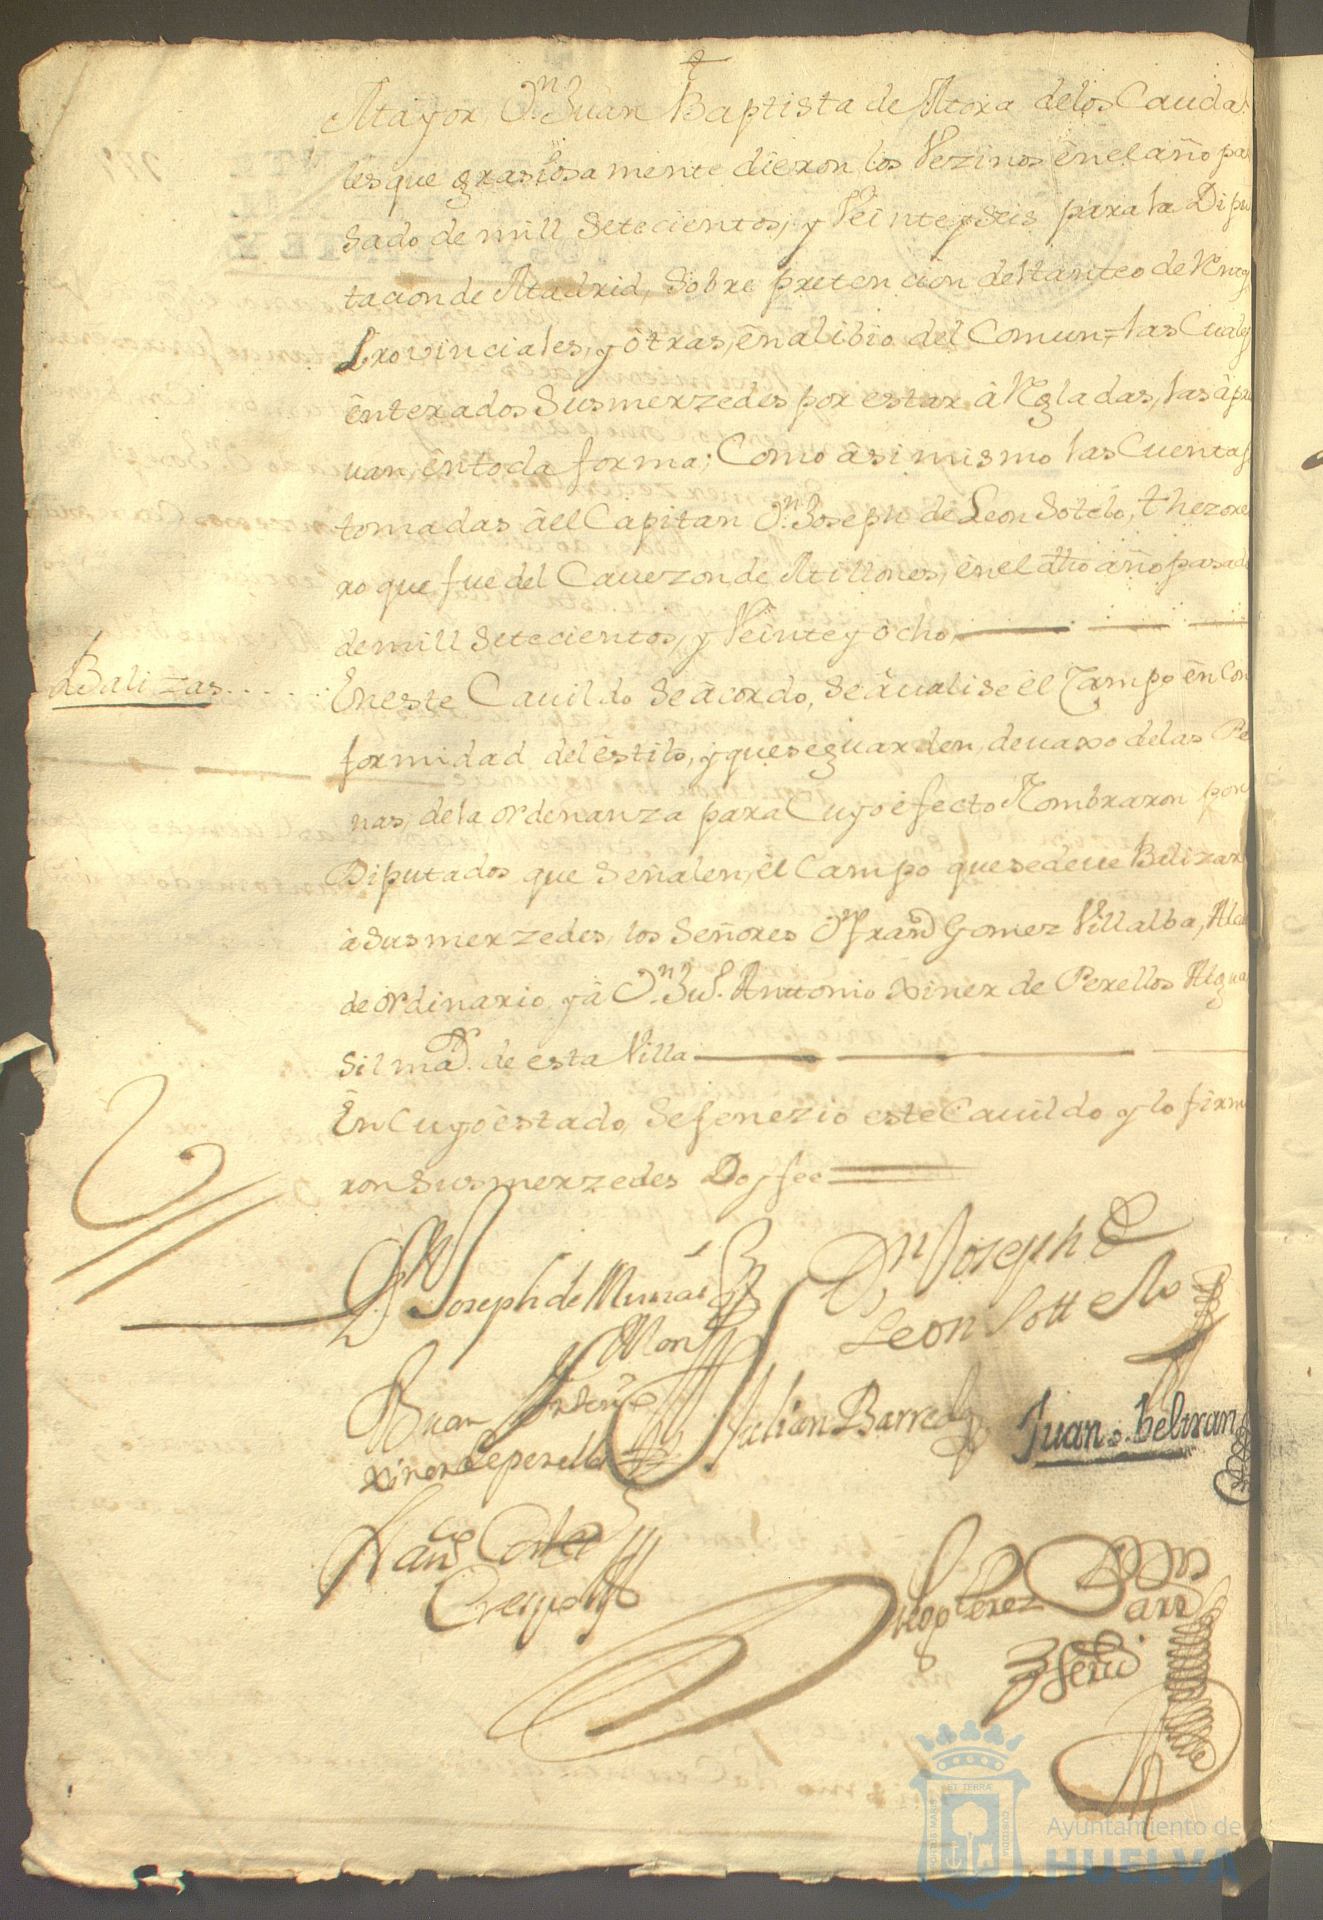 Mayor, Dn. Juan Baptista de Mora delos Cauda
les que grasiosamente dieron los Vezinos ênel año pa
sado de mill Setecientos, y Veinteyseis para la Dipu
tacion de Madrid, sobre pretencion deltanteo de Rentas
Provinciales, y ôtras, ênalibio del Comun,= las Cuales
ênterados Susmerzedes por estar â Regladas, las âpru
uan, êntoda forma; Como âsimismo las Cuentas
tomadas âel Capitan Dn. Joseph de Leon Sotelo, thezore
ro que fue del Cauezon de Millones, ênel dho año pasado
demill Setecientos, y Veinteyocho,
Balizas.... Eneste Cauildo Seâcordo, Seâualise êl Campo ênCon
formidad delêstilo, y queseguarden, deuaxo delas Pe
nas, dela ordenanza para Cuyo êfecto Nombraron por
Diputados, que Señalen, êl Campo quesedeue Balizar
à Susmerzedes, los Señores Dn Frando Gomez Villalba, Alcal
de ordinario, y â Dn. Ju. Antonio Xiner de Perellos Algua
Sil mor. de esta Villa
En Cuyo êstado, Sefenezio este Cauildo y lo firma
ron Susmerzedes Doyfee
Dn Joseph de
Dn Joseph de
Leon Sottelo
Juan Antonio
Xiner de perellos
Julian Barreda
Juan. beltran
Franco Cortes
Crespo
Diego Perez
Ayuntamiento de
HUELVA